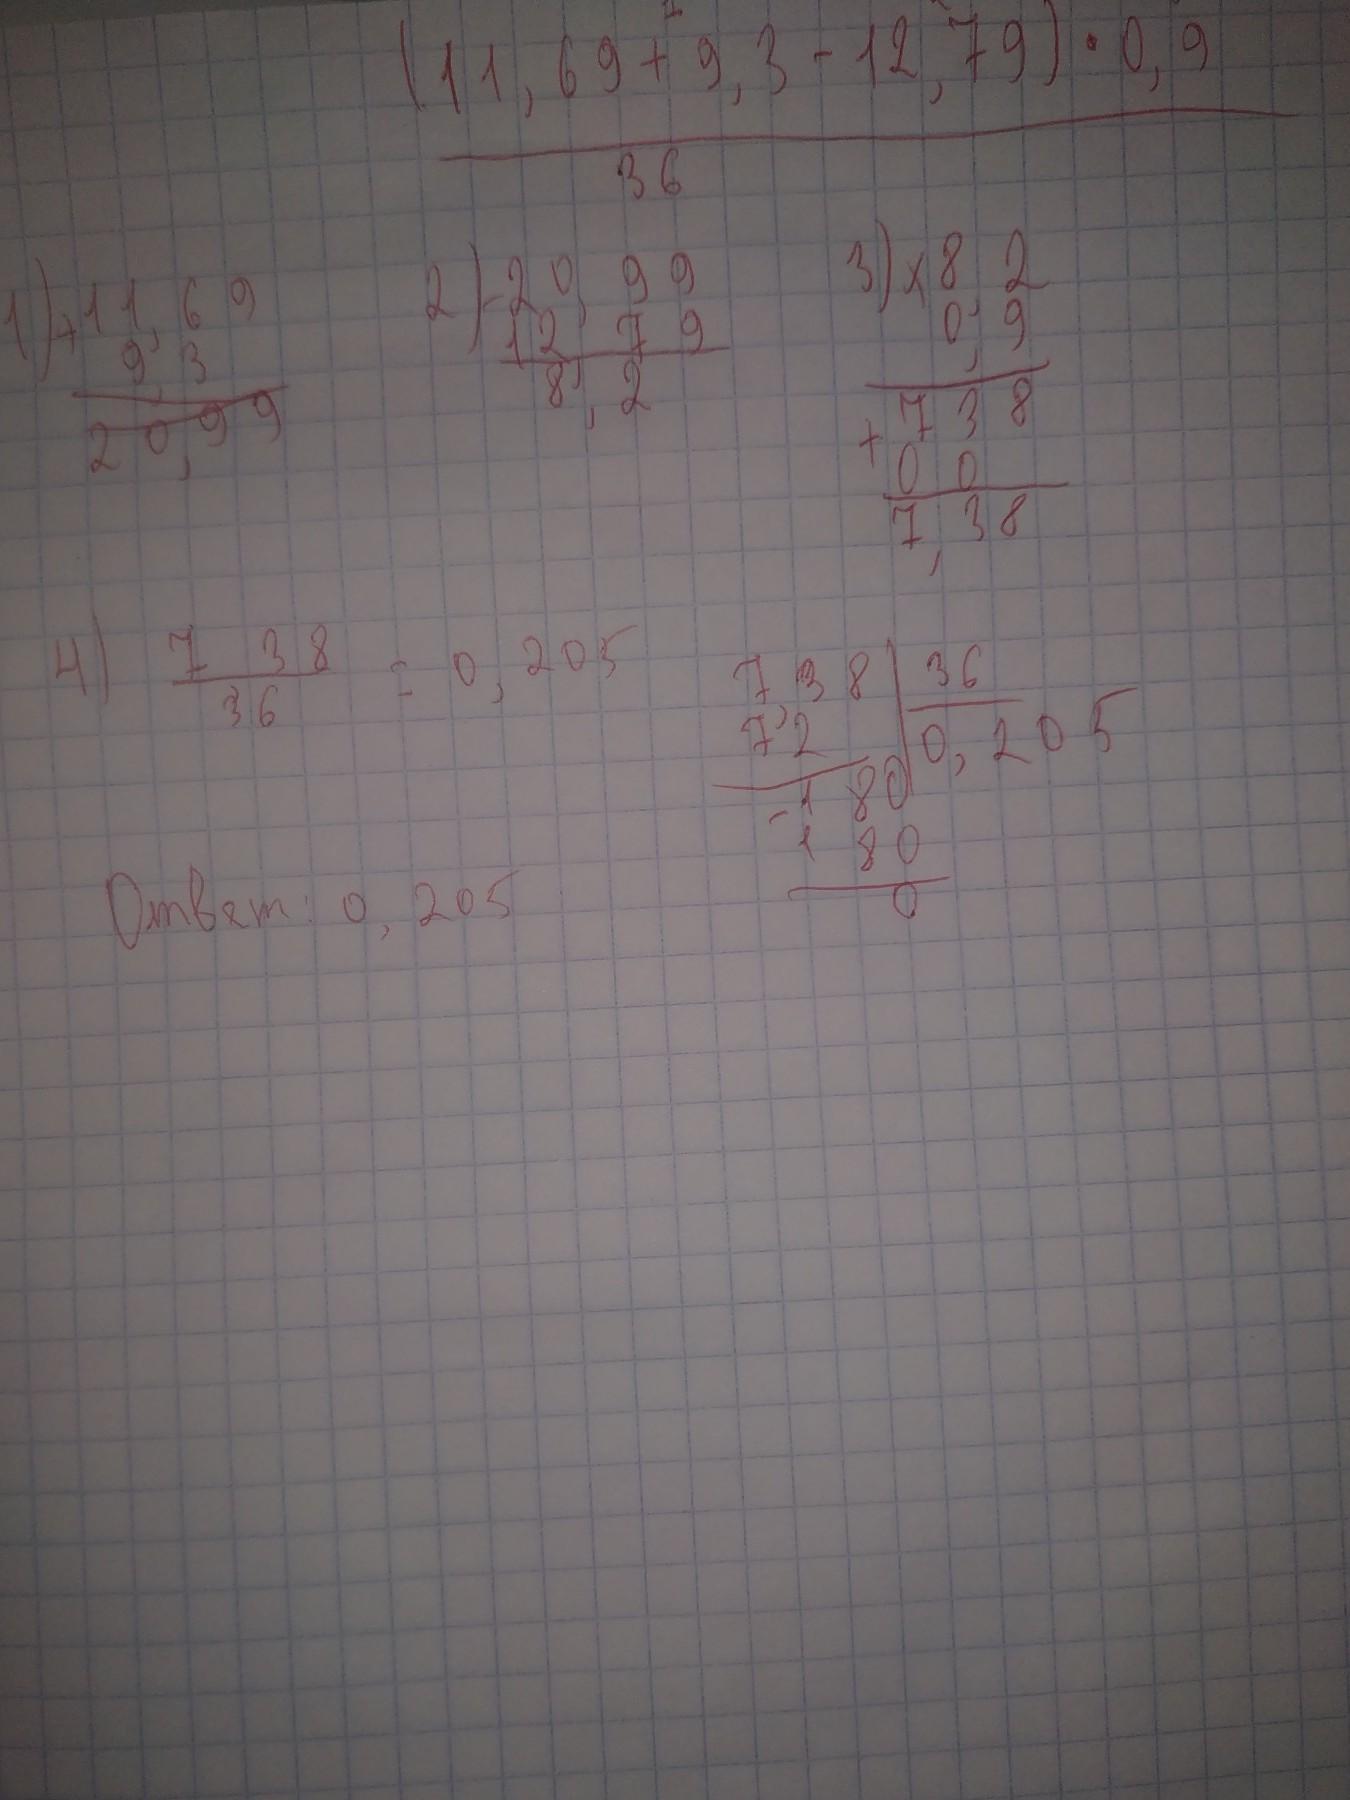 (11,69+9,3-12,79)·0,9
36
1) +11,69
9,3
20,99
2) -20,99
12,79
8,2
3) x8,2
0,9
+738
00
7,38
4) 7,38
36
= 0,205
7,38 36
72 0,205
-180
180
0
Ответ: 0,205